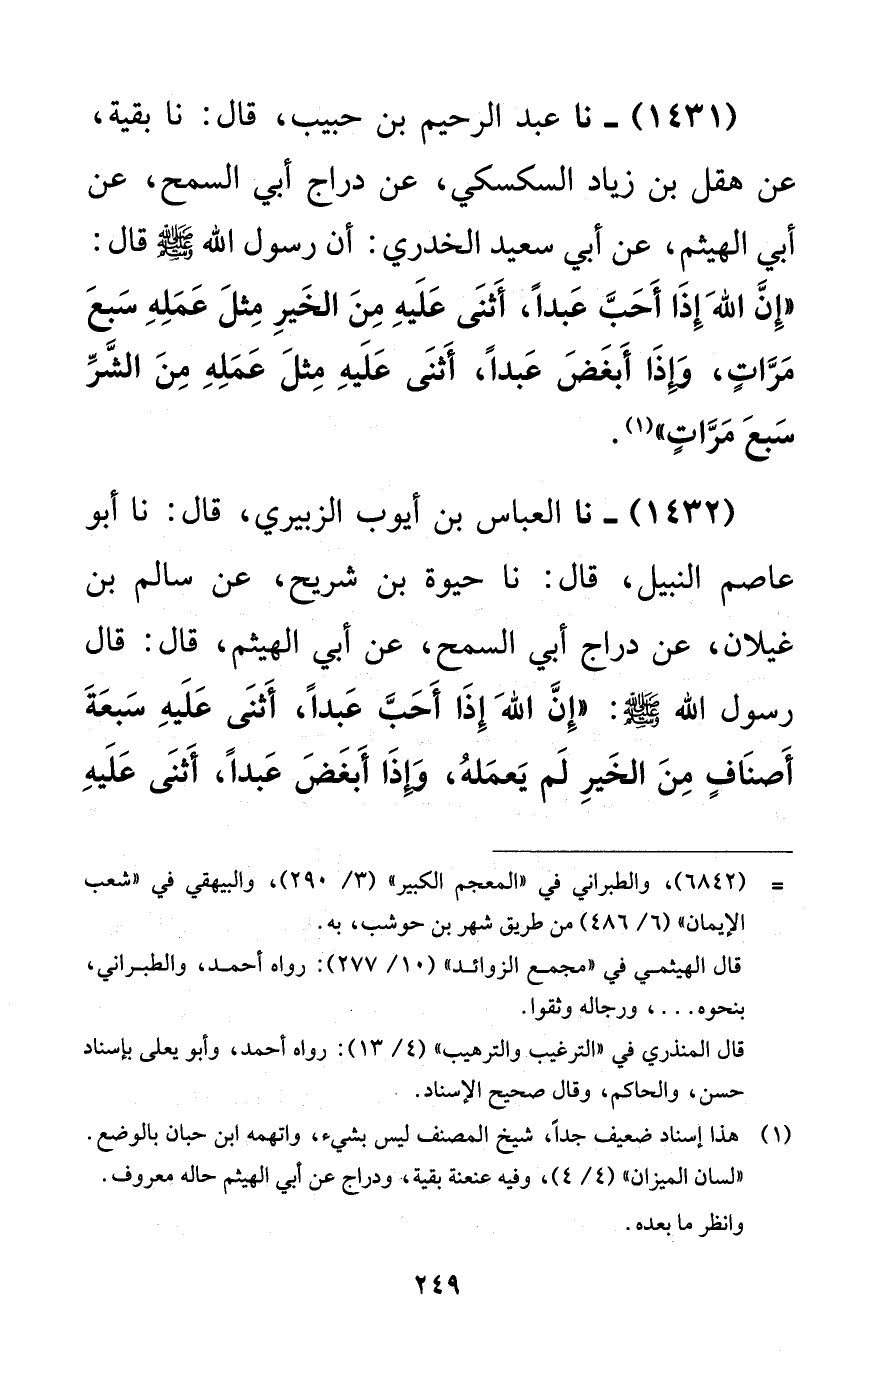 (١٤٣١) ـ نا عبد الرحيم بن حبيب، قال: نا بقية،
عن هقل بن زياد السكسكي، عن دراج أبي السمح، عن
أبي الهيثم، عن أبي سعيد الخدري: أن رسول الله ﷺ قال:
«إِنَّ اللهَ إِذَا أَحَبَّ عَبداً، أَثنَى عَلَيهِ مِنَ الخَيرِ مِثلَ عَمَلِهِ سَبعَ
مَرَّاتٍ، وَإِذَا أَبغَضَ عَبداً، أَثنَى عَلَيهِ مِثلَ عَمَلِهِ مِنَ الشَّرِّ
سَبعَ مَرَّاتٍ»(١).
(١٤٣٢) ـ نا العباس بن أيوب الزبيري، قال: نا أبو
عاصم النبيل، قال: نا حيوة بن شريح، عن سالم بن
غيلان، عن دراج أبي السمح، عن أبي الهيثم، قال: قال
رسول الله ﷺ: «إِنَّ اللهَ إِذَا أَحَبَّ عَبداً، أَثنَى عَلَيهِ سَبعَةَ
أَصنَافٍ مِنَ الخَيرِ لَم يَعمَلهُ، وَإِذَا أَبغَضَ عَبداً، أَثنَى عَلَيهِ
= (٦٨٤٢)، والطبراني في «المعجم الكبير» (٣/ ٢٩٠)، والبيهقي في «شعب
الإيمان» (٦/ ٤٨٦) من طريق شهر بن حوشب، به.
قال الهيثمي في «مجمع الزوائد» (١٠/ ٢٧٧): رواه أحمد، والطبراني،
بنحوه...، ورجاله وثقوا.
قال المنذري في «الترغيب والترهيب» (٤/ ١٣): رواه أحمد، وأبو يعلى بإسناد
حسن، والحاكم، وقال صحيح الإسناد.
(١) هذا إسناد ضعيف جداً، شيخ المصنف ليس بشيء، واتهمه ابن حبان بالوضع.
«لسان الميزان» (٤/ ٤)، وفيه عنعنة بقية، ودراج عن أبي الهيثم حاله معروف.
وانظر ما بعده.
٢٤٩